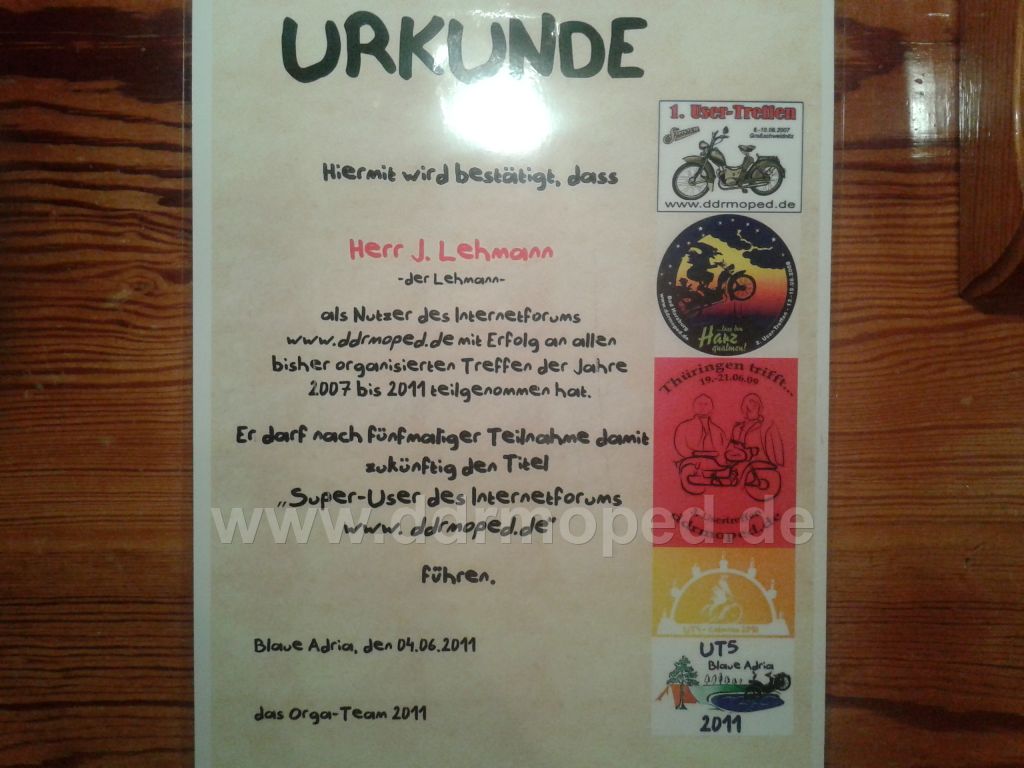 URKUNDE
Hiermit wird bestätigt, dass
Herr J. Lehmann
-der Lehmann-
als Nutzer des Internetforums
www.ddrmoped.de mit Erfolg an allen
bisher organisierten Treffen der Jahre
2007 bis 2011 teilgenommen hat.
Er darf nach fünfmaliger Teilnahme damit
zukünftig den Titel
„Super-User des Internetforums
www.ddrmoped.de"
führen.
Blaue Adria, den 04.06.2011
das Orga-Team 2011
1. User-Treffen
8.-10.06.2007
Großschweidnitz
www.ddrmoped.de
Bad Harzburg
www.ddrmoped.de
2. User-Treffen
...lass den
Harz
qualmen!
Thüringen trifft...
19.-21.06.09
ddrmoped.de
UT5
Blaue Adria
2011
www.ddrmoped.de